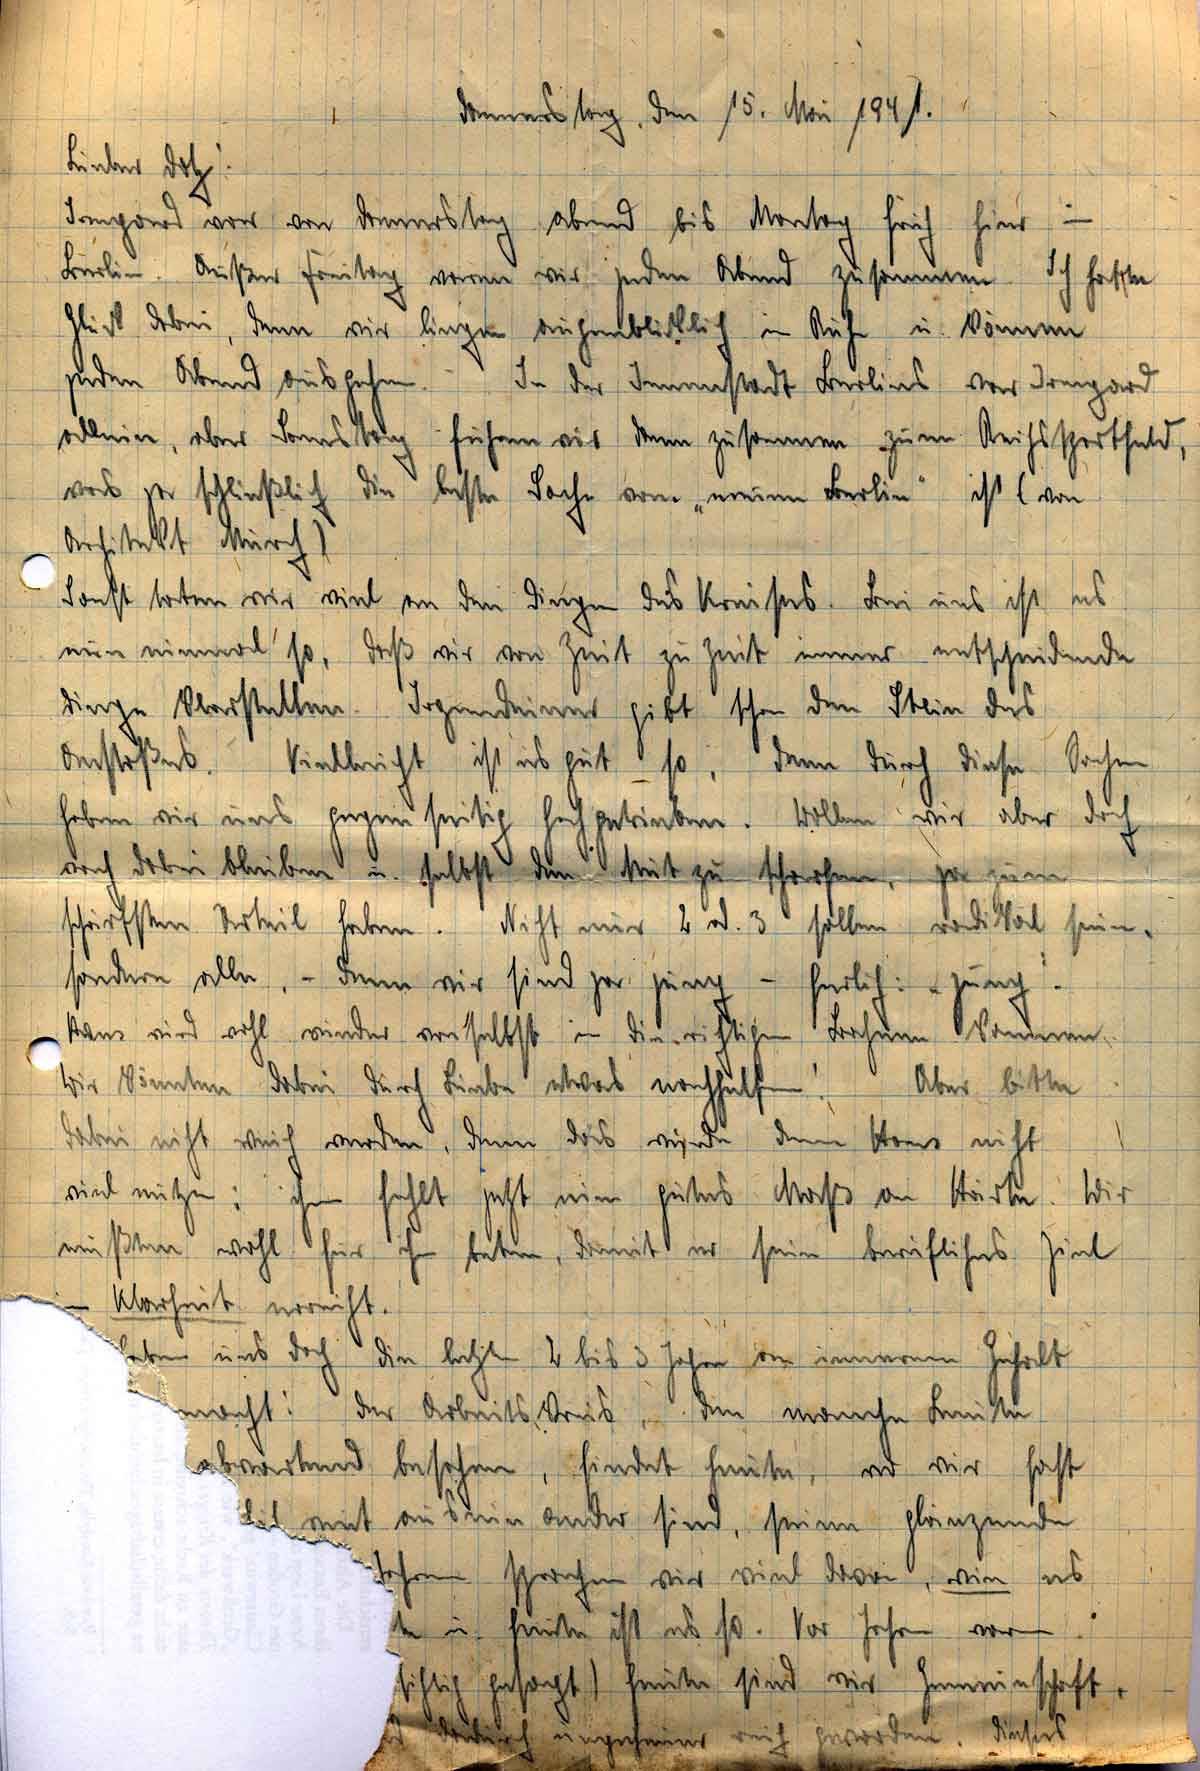 Donnerstag, den 15. Mai 1941.
Lieber Dolf!
Irmgard war von Donnerstag abend bis Montag früh hier in
Berlin. Außer Freitag waren wir jeden Abend zusammen. Ich hatte
Glück dabei, denn wir liegen augenblicklich in Ruhe u. können
jeden Abend ausgehen. - In der Innenstadt Berlins war Irmgard
allein, aber Samstag fuhren wir dann zusammen zum Reichssportfeld,
was ja schließlich die beste Sache vom „neuen Berlin" ist (von
Architekt March)
Sonst taten wir viel an den Dingen des Kreises. Bei uns ist es
nun einmal so, daß wir von Zeit zu Zeit immer entscheidende
Dinge klarstellen. Irgendeiner gibt schon den Stein des
Anstoßes. Vielleicht ist es gut so, denn durch diese Sachen
haben wir uns gegenseitig hochgetrieben. Wollen wir aber doch
auch dabei bleiben u. selbst den Mut zu scharfem, ja zum
schärfsten Urteil haben. Nicht nur 2 od. 3 sollen radikal sein,
sondern alle, - denn wir sind ja jung - herrlich: „jung"!
Hans wird wohl wieder von selbst in die richtigen Bahnen kommen.
Wir könnten dabei durch Liebe etwas nachhelfen! Aber bitte
dabei nicht weich werden, denn das würde dem Hans nicht
viel nützen; ihm fehlt jetzt ein gutes Maß an Härte. Wir
müßten wohl für ihn beten, damit er sein berufliches Ziel
in Klarheit erreicht.
haben uns doch die letzten 2 bis 3 Jahre an innerem Gehalt
macht! Der Arbeitskreis, den manche Leute
abwartend besahen, findet heute, wo wir fast
weit auseinander sind, seine glänzende
Jahren sprachen wir viel davon, wie es
u. heute ist es so. Vor Jahren waren
gesagt) heute sind wir Gemeinschaft,
dadurch ungeheuer reich geworden. Dieses